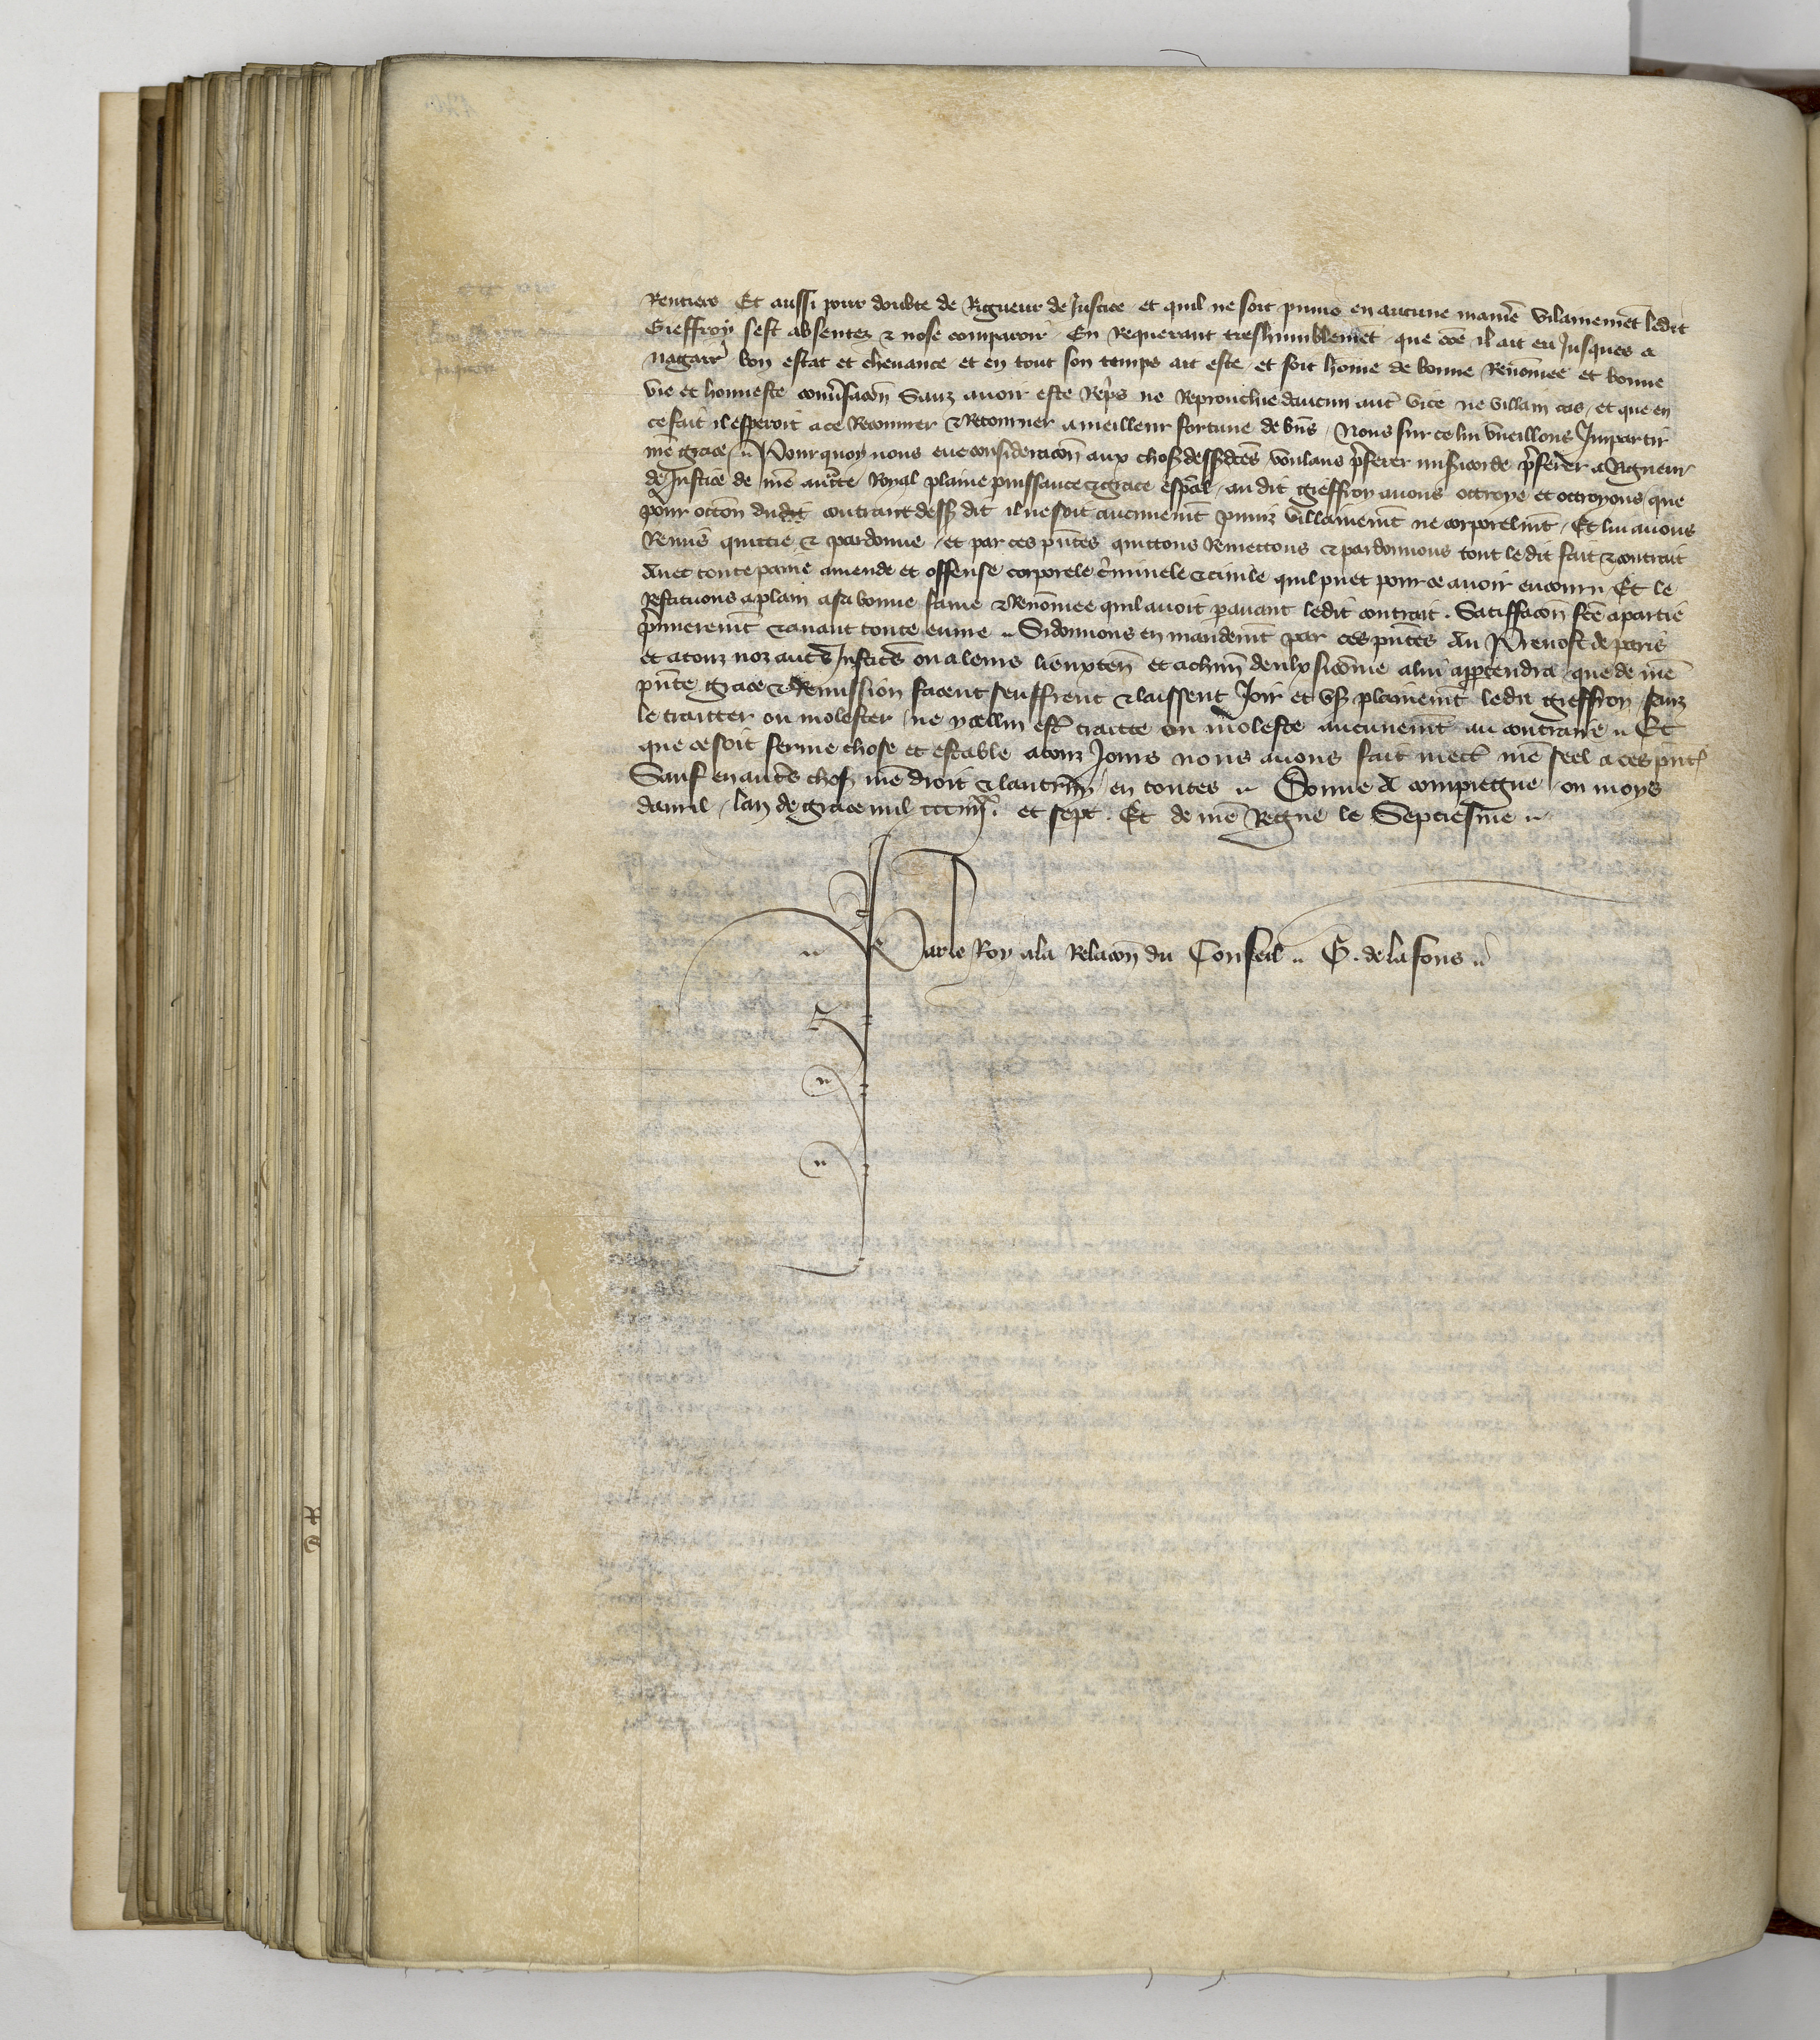 Rentiers Et aussi pour doubte de Rigueur de Justice et quil ne soit puniz en aucune manie᷑ Vilainemet ledit
Gieffroy sest absentez & nose comparoir En Requerant treshumblemet que coe il ait eu Jusques a
nagair᷑ bon estat et chevance et en tout son temps ait este et soit home de bonne Renomee et bonne
vie et honneste convsacon Sanz avoir este Repris ne Reprouchie daucun aut vice ne villain cas et que en
ce fait il esperoit a ce Recouvrer & Retourner a meilleur fortune de bns Nous sur ce lui vueillons Impartir
nre grace Pour quoy nous eue consideracon aux choses dessdces voulans prferer misicorde prferer a Rigueur
de Justice de nre aucte Royal plaine puissance & grace espcal au dit Gieffroy avons ottroye et ottroyons que
pour occon dudit contraut dess dit il ne soit aucunemt puniz villainemt ne corporelmt Et lui avons
Remis quittie & pardonne et par ces pntes quittons Remettons & pardonnons tout le dit fait & contrait
Avec toute paine amende et offense corporele criminele & civile quil puet pour ce avoir encouru Et le
Restituons a plain a sa bonne fame & Renomee quil avoit pavant ledit contrait . Satiffacon fce a partie
primeremt & avant toute euvre Si donnons en mandemt par ces pntes Au Prevost de paris
et a touz noz autes Justices ou a leurs lieuxten et a chun deulx sicome a lui apptendra que de nre
pnte grace & Remission facent seuffrent & laissent Joir et us plainemt ledit Gieffroy sanz
le traitter ou molester ne ycellui estre traitte ou moleste aucunemt au contraire Et
que ce soit ferme chose et estable a touz Jours nous avons fait mectre nre seel a ces pntes
Sauf en autes choses nre droit & lautruy en toutes Donne A compiegne ou moys
davril lan de grace mil ccc iiiixx et sept . Et de nre Regne le Septiesme
Par le Roy a la Relacon du Conseil G . de la fons